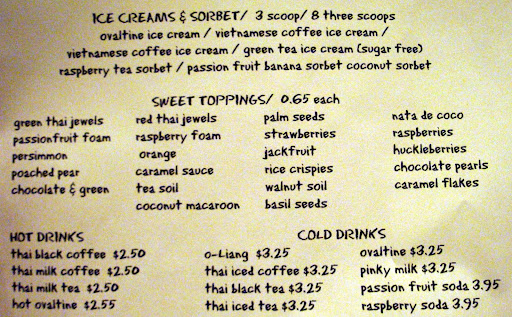 ICE CREAMS & SORBET/ 3 scoop/ 8 three scoops
ovaltine ice cream / vietnamese coffee ice cream /
vietnamese coffee ice cream / green tea ice cream (sugar free)
raspberry tea sorbet / passion fruit banana sorbet coconut sorbet
SWEET TOPPINGS/ 0.65 each
green thai jewels
passionfruit foam
persimmon
poached pear
chocolate & green
red thai jewels
raspberry foam
orange
caramel sauce
tea soil
coconut macaroon
palm seeds
strawberries
jackfruit
rice crispies
walnut soil
basil seeds
nata de coco
raspberries
huckleberries
chocolate pearls
caramel flakes
HOT DRINKS
thai black coffee $2.50
thai milk coffee $2.50
thai milk tea $2.50
hot ovaltine $2.55
COLD DRINKS
o-Liang $3.25
thai iced coffee $3.25
thai black tea $3.25
thai iced tea $3.25
ovaltine $3.25
pinky milk $3.25
passion fruit soda 3.95
raspberry soda 3.95